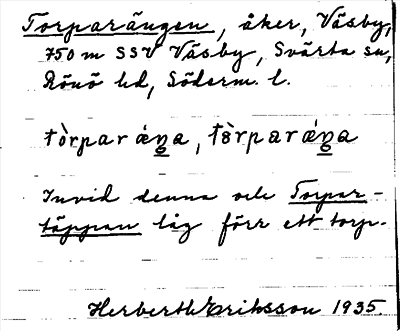 Torparängen, åker, Väsby,
750 m SSV Väsby, Svärta sn,
Rönö hd, Söderm. l.
tòrparǽŋa, tòrparǽŋa
Invid denna och Torpar-
täppan låg förr ett torp.
Herberth Eriksson 1935.